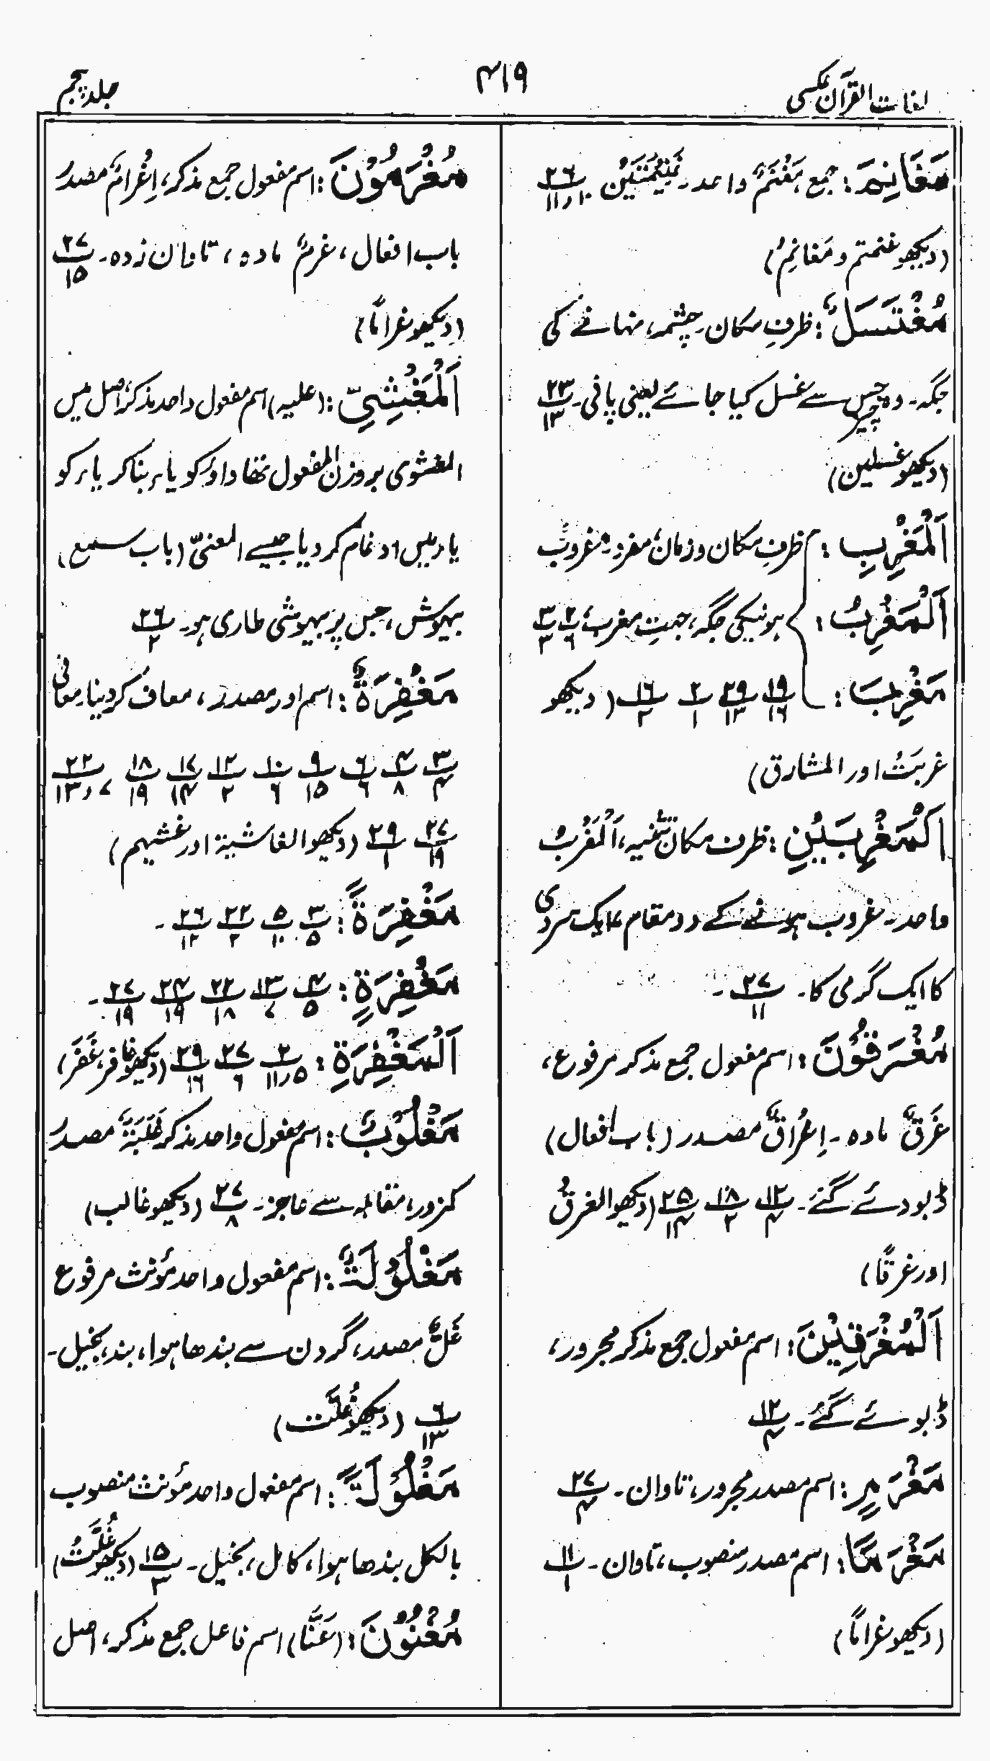 لغات القرآن عکسی
۴۱۹
جلد پنجم
مَغَانِمَ: جمع، مَغْنَمٌ واحد۔ غنیمتیں ۲۶/۱۰،۱۱
(دیکھو غنمتم و مَغانِمُ)
مُغْتَسَلٌ: ظرفِ مکان۔ چشمہ، نہانے کی
جگہ۔ وہ چیز جس سے غسل کیا جائے یعنی پانی۔ ۲۳/۱۳
(دیکھو غسلین)
اَلْمَغْرِبِ: ظرفِ مکان و زمان، مفرد۔ غروب
اَلْمَغْرِبُ: ہونیکی جگہ، جہتِ مغرب، ۲/۶ ۳/۳
مَغْرِبَ: ۱۹/۱۶ ۲۹/۱۳ ۲/۱ ۱۶/۲ (دیکھو
غربَتْ اور المشارق)
اَلْمَغْرِبَیْنِ: ظرف مکان تثنیہ، اَلْمَغْرِبُ
واحد۔ غروب ہونے کے دو مقام، ایک سردی
کا ایک گرمی کا۔ ۲۷/۱۱۔
مُغْرَقُوْنَ: اسم مفعول جمع مذکر مرفوع،
غَرَقٌ مادہ۔ اِغْرَاقٌ مصدر (باب افعال)
ڈبو دئے گئے۔ ۱۲/۴ ۱۸/۲ ۲۵/۱۴ (دیکھو الغرقُ
اور غرقًا)
اَلْمُغْرَقِیْنَ: اسم مفعول جمع مذکر مجرور،
ڈبوئے گئے۔ ۱۲/۴
مَغْرَمٍ: اسم مصدر مجرور، تاوان۔ ۲۷/۴
مَغْرَمًا: اسم مصدر منصوب، تاوان۔ ۱۱/۱
(دیکھو غرامًا)
مُغْرَمُوْنَ: اسم مفعول جمع مذکر، اِغْرَامٌ مصدر
باب افعال، غرمٌ مادہ، تاوان زدہ۔ ۲۷/۱۵
(دیکھو غرامًا)
اَلْمَغْشِیِّ: (علیہ) اسم مفعول واحد مذکر، اصل میں
المغشوی بروزن المفعول تھا واؤ کو یاء بنا کر یاء کو
یاء میں ادغام کر دیا جیسے المعنیّ (باب سمع)
بیہوش، جس پر بیہوشی طاری ہو۔ ۲۶/۲
مَغْفِرَةٌ: اسم اور مصدر، معاف کر دینا۔ معافی
۳/۴ ۴/۸ ۶/۶ ۹/۱۵ ۱۰/۶ ۱۲/۲ ۱۷/۱۴ ۱۸/۱۹ ۲۲/۷،۱۳
۲۷/۱۹ ۲۹/۱ (دیکھو الغاشیۃ اور غشیہم)
مَغْفِرَةً: ۳/۵ ۵/۱۰ ۲۲/۲ ۲۶/۱۲۔
مَغْفِرَةٍ: ۴/۵ ۱۳/۷ ۲۲/۱۸ ۲۴/۱۹ ۲۷/۱۹۔
اَلْمَغْفِرَةِ: ۲/۵،۱۱ ۲۷/۶ ۲۹/۱۶ (دیکھو غافر، غَفَرَ)
مَغْلُوْبٌ: اسم مفعول واحد مذکر غَلَبَةٌ مصدر
کمزور، مقابلہ سے عاجز۔ ۲۷/۸ (دیکھو غالب)
مَغْلُوْلَةٌ: اسم مفعول واحد مؤنث مرفوع
غَلٌّ مصدر، گردن سے بندھا ہوا، بند، بخیل۔
۶/۱۳ (دیکھو غُلَّت)
مَغْلُوْلَةً: اسم مفعول واحد مؤنث منصوب
بالکل بندھا ہوا، کامل، بخیل۔ ۱۵/۳ (دیکھو غُلَّتْ)
مُغْنُوْنَ: (عَنَّا) اسم فاعل جمع مذکر، اصل